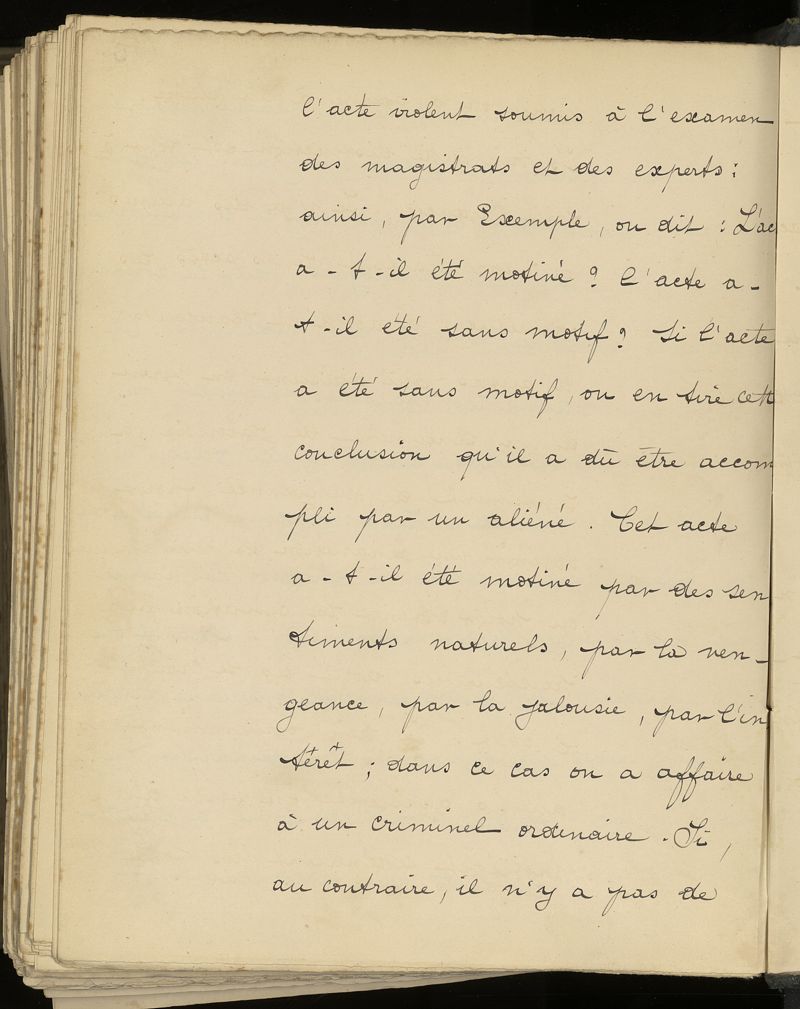 l'acte violent soumis à l'examen
des magistrats et des experts :
ainsi, par Exemple, on dit : L'ac
a - t - il été motivé ? L'acte a -
t - il été sans motif ? Si l'acte
a été sans motif, on en tire cett
conclusion qu'il a dû être accom
pli par un aliéné. Cet acte
a - t - il été motivé par des sen
timents naturels, par la ven -
geance, par la jalousie, par l'in
térêt ; dans ce cas on a affaire
à un criminel ordinaire. Si,
au contraire, il n'y a pas de